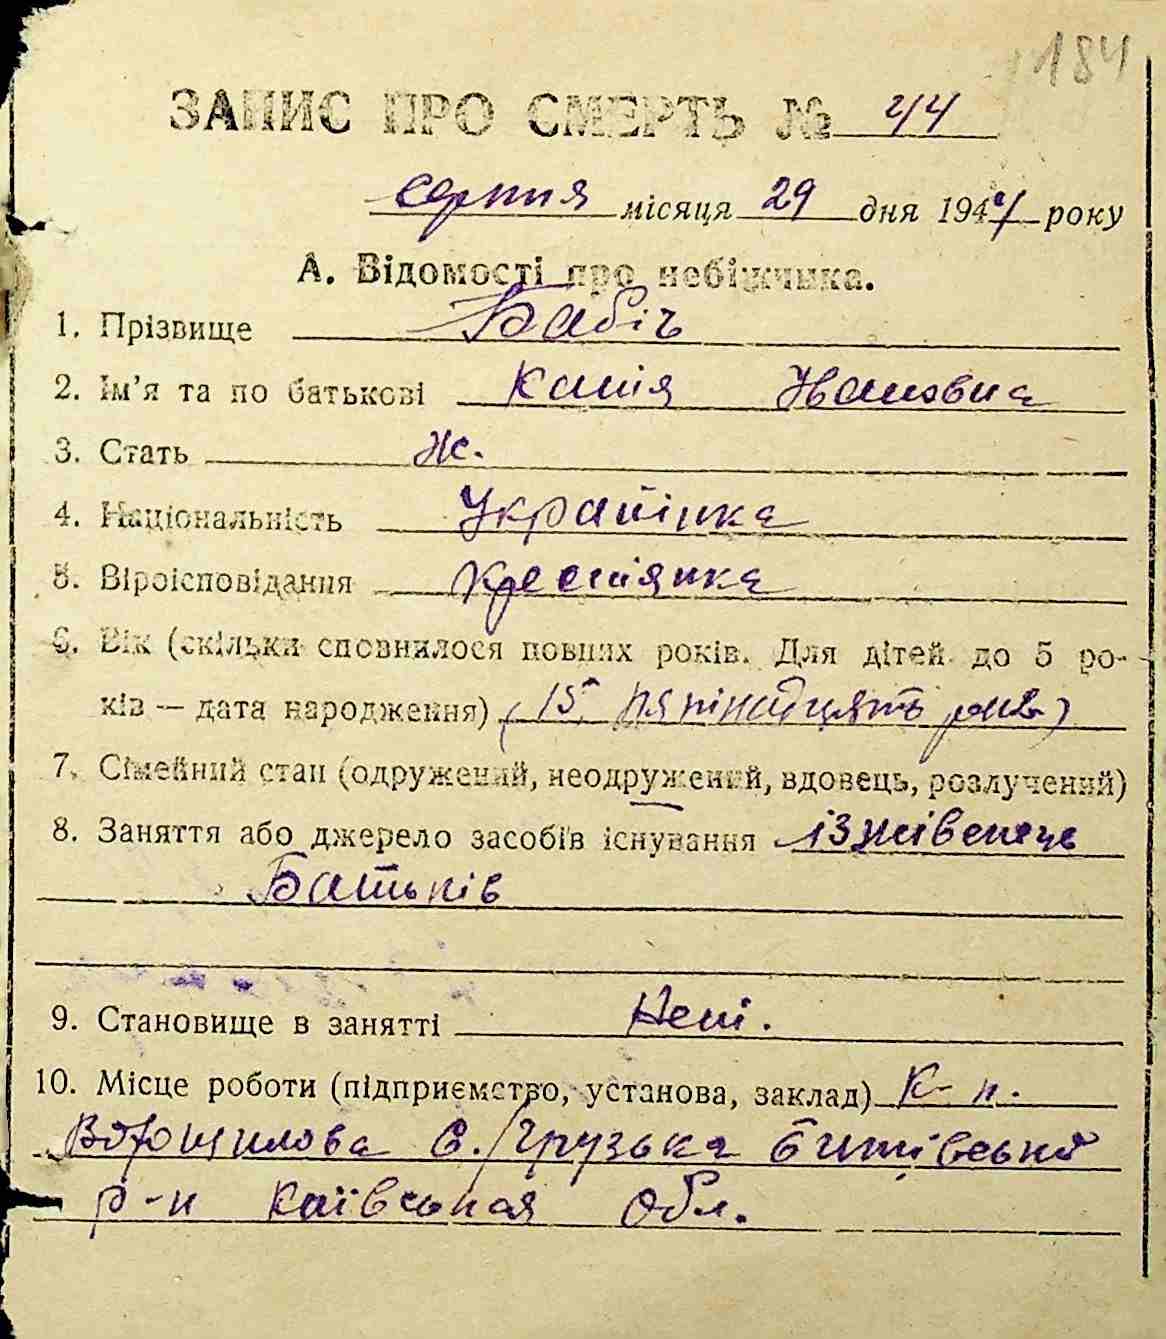 184
ЗАПИС ПРО СМЕРТЬ № 44
серпня місяця 29 дня 1944 року
А. Відомості про небіжчика.
1. Прізвище Бабіч
2. Ім'я та по батькові Катія Ивановна
3. Стать Ж.
4. Національність Українка
5. Віроісповідання Хрестіянка
6. Вік (скільки сповнилося повних років. Для дітей до 5 ро-
ків — дата народження) (15 пятінатцять рок.)
7. Сімейний стан (одружений, неодружений, вдовець, розлучений)
8. Заняття або джерело засобів існування ізживенець
Батьків
9. Становище в занятті Нет.
10. Місце роботи (підприємство, установа, заклад) К-п.
Ворошилова С. Грузька Бишівський
р-н Київская обл.